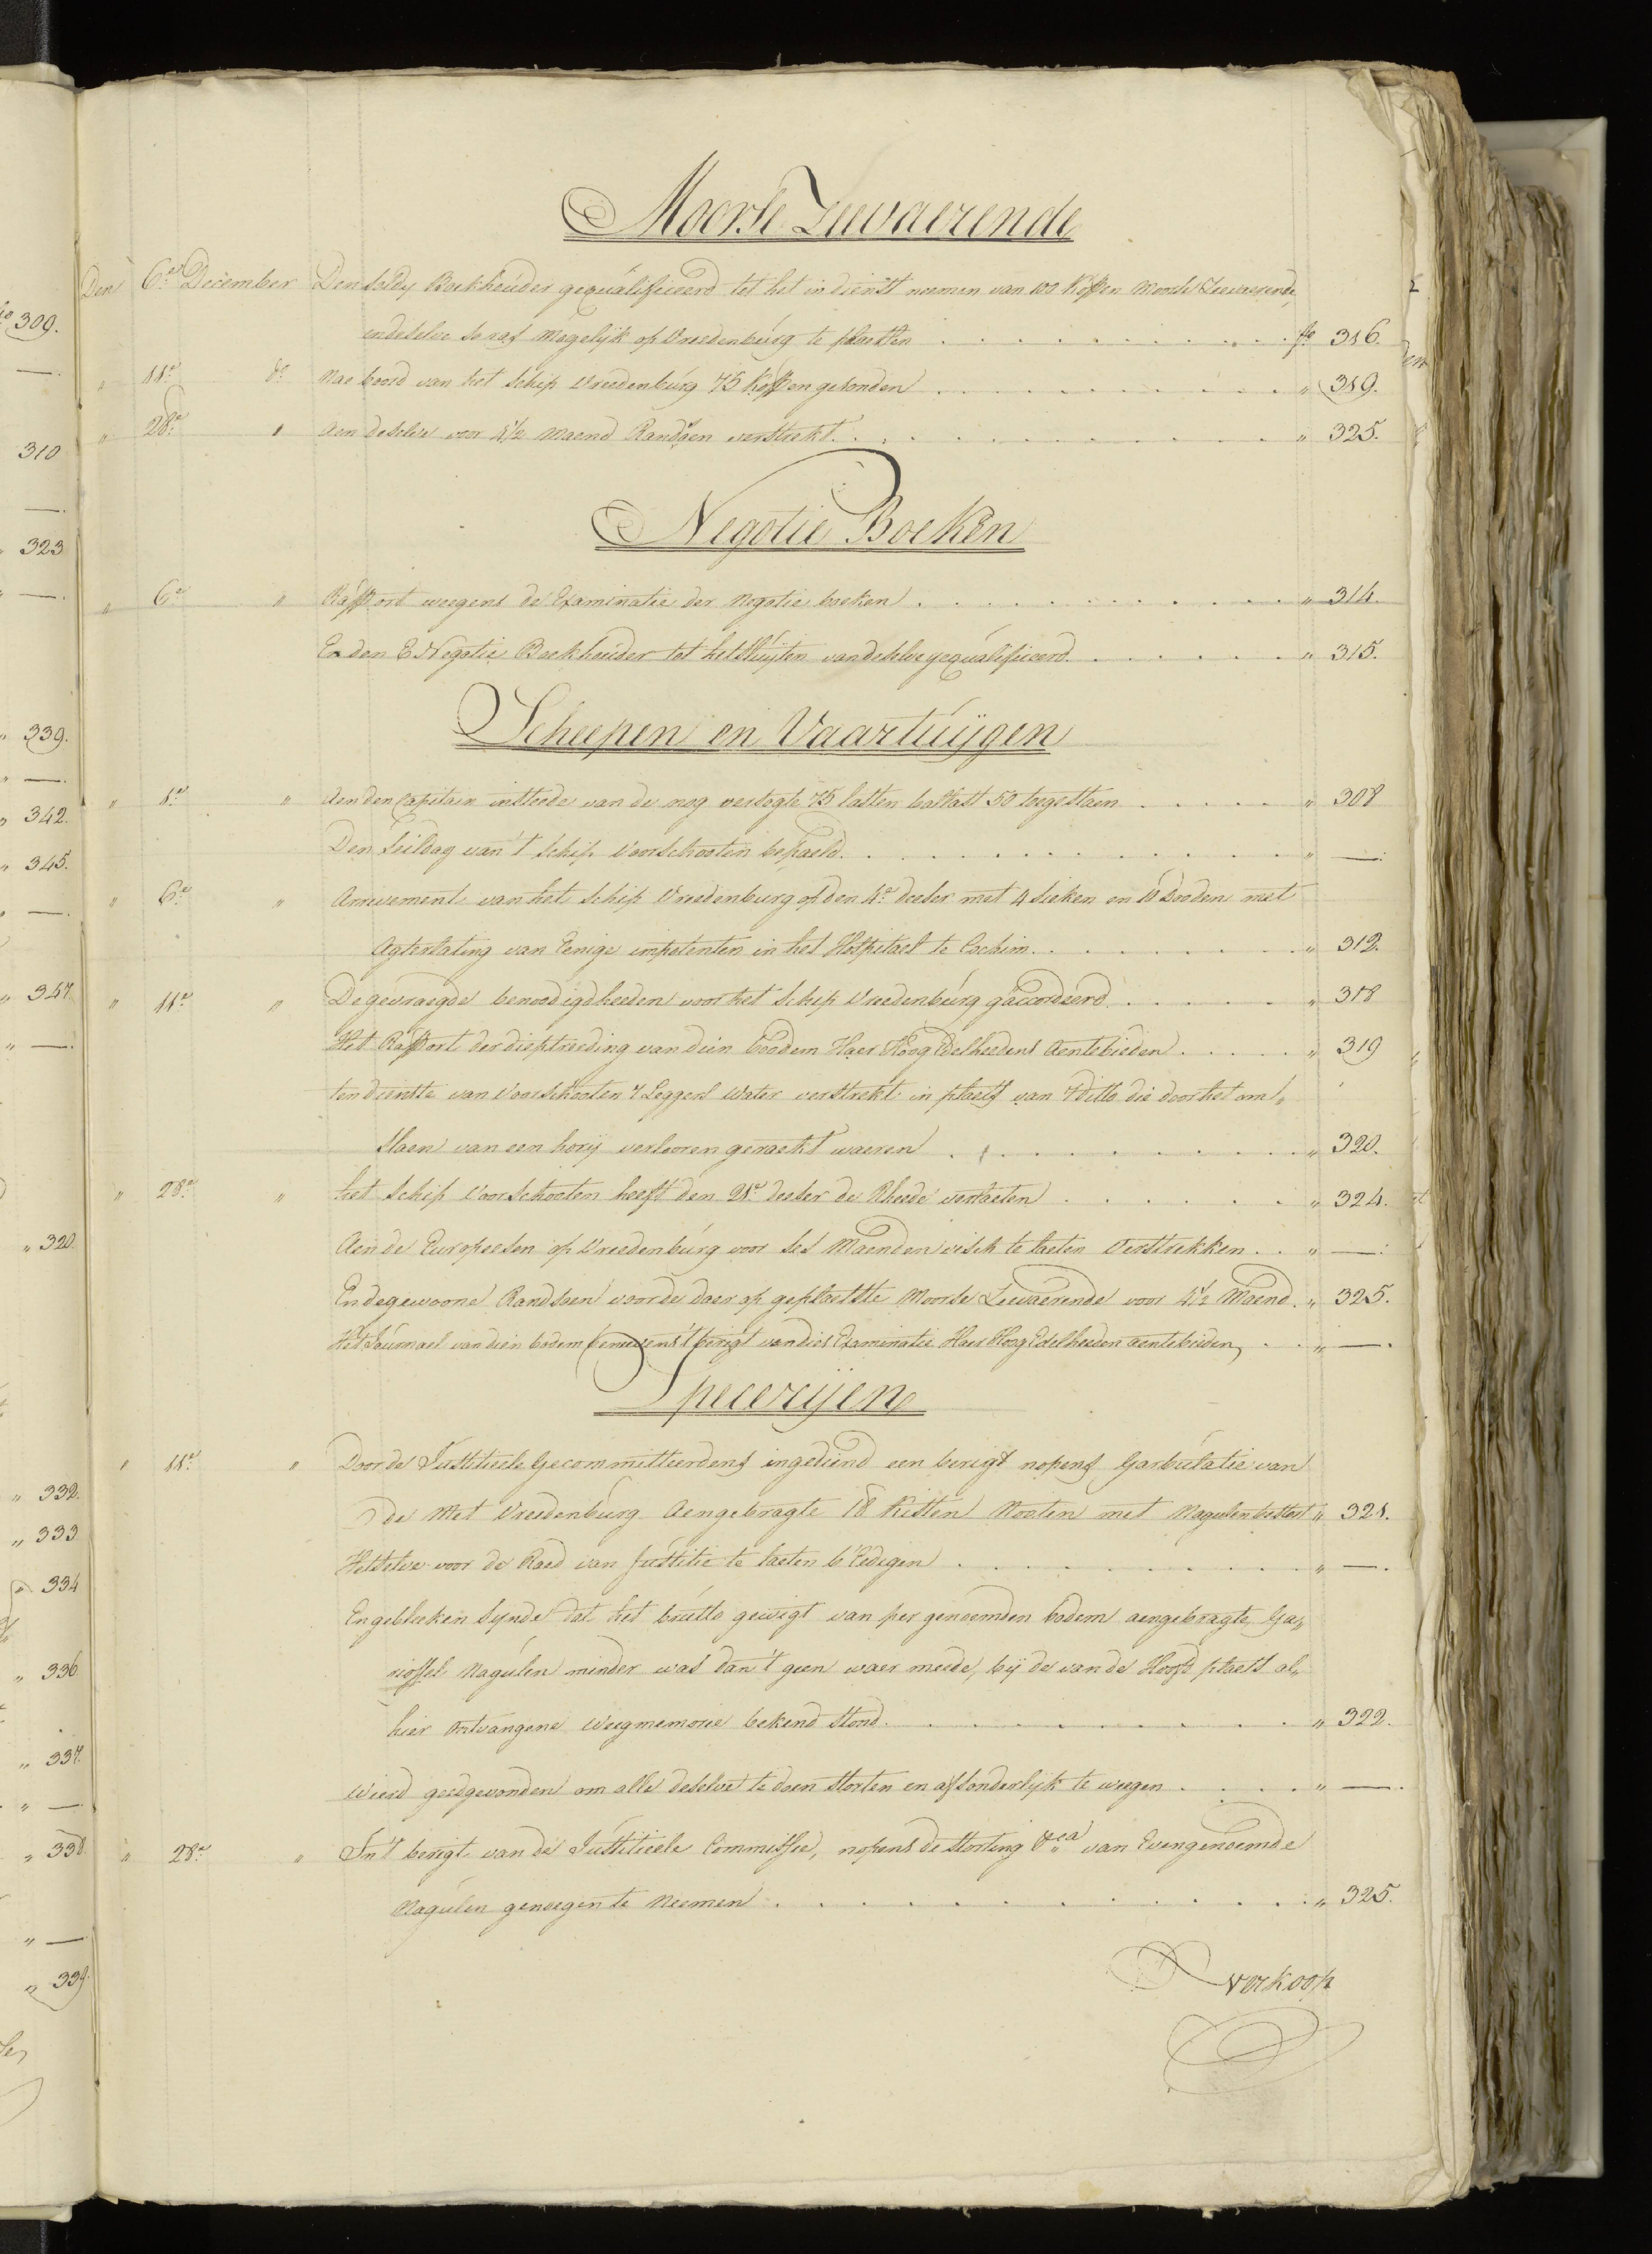 Moorse Zeevaerende
Den 6.e December Den Soldy Boekhouder gequalificeerd tot het in dienst neemen van 100 Koppen Moorse Zeevaerende,
en deselve so ras Mogelijk op Vreedenburg te plaetsen . . . . . . . fo 316.
" 11.e do Nae boord van het schip Vreedenburg 75 Koppen gesonden . . . . . . . " 319.
" 28.e " Aen deselve voor 4½ Maend Randsoen verstrekt . . . . . . . " 325.
Negotie Boeken
" 6.e " Rapport weegens de Examinatie der Negotie boeken . . . . . . . " 314.
En den E Negotie Boekhouder tot het sluijten van deselve gequalificeerd . . . . . . . " 315.
Scheepen en Vaartuijgen
" 1.e " Aen den Capitain insteede van de nog versogte 75 lasten ballast 50 toegestaen . . . . . " 308
Den Seildag van 't schip Voorschooten bepaeld . . . . . . . " —.
" 6.e " Arrivement van het schip Vreedenburg op den 4.e deeser met 4 sieken en 10 Dooden met
Agterlating van Eenige impotenten in het Hospitael te Cochim . . . . . . . " 312.
" 11.e " De gevraegde benoodigdheeden voor het schip Vreedenburg g'accordeerd . . . . . . . " 318
Het Rapport der dieptreeding van dien boodem Haer Hoog Edelheedens Aentebieden . . . . . " 319
ten dienste van Voorschooten 7 Leggers Water verstrekt in plaets van 7 ditto die door het om„
slaen van een horij verlooren geraekt waeren . . . . . . . " 320.
" 28.e " het schip Voorschooten heeft den 21.e deeser de Rheede verlaeten . . . . . . . " 324.
Aen de Europeesen op Vreedenburg voor ses Maenden visch te laeten Verstrekken . . " —.
En de gewoone Randsoen voor de daer op geplaetste Moorse Zeevaerende voor 4½ Maend. " 325.
Het Journael van dien bodem beneevens 't berigt van dies Examinatie Haer Hoog Edelheeden aentebieden, . . " —.
Specerijen
" 11.e " Door de Justitieele Gecommitteerdens ingediend een berigt nopens Garbulatie van
de Met Vreedenburg Aengebragte 18 Kisten Nooten met Nagulen bestort " 321.
Hetselve voor de Raed van Justitie te laeten b'Eedigen . . . . . . . " —.
En gebleeken sijnde dat het brutto gewigt van per genoemden bodem aengebragte Ga„
rioffel Nagulen minder was dan 't geen waer meede, bij de van de Hoofd plaets al„
hier Ontvangene Weegmemorie bekend stond . . . . . . . " 322.
Wierd goedgevonden om alle deselve te doen storten en afsonderlijk te weegen . . . . . " —.
" 28.e " In 't berigt van de Justitieele Commissie, nopens de storting &ca van Evengenoemde
Nagulen genoegen te Neemen . . . . . . . " 325.
Verkoop
309.
—.
310
—.
" 323
" —.
" 339.
" —.
" 342.
" 345.
" —.
" 347.
" —.
" 320.
" 332.
" 333
" 334
" 336
" 337.
" —
" 338.
" —
" 339.